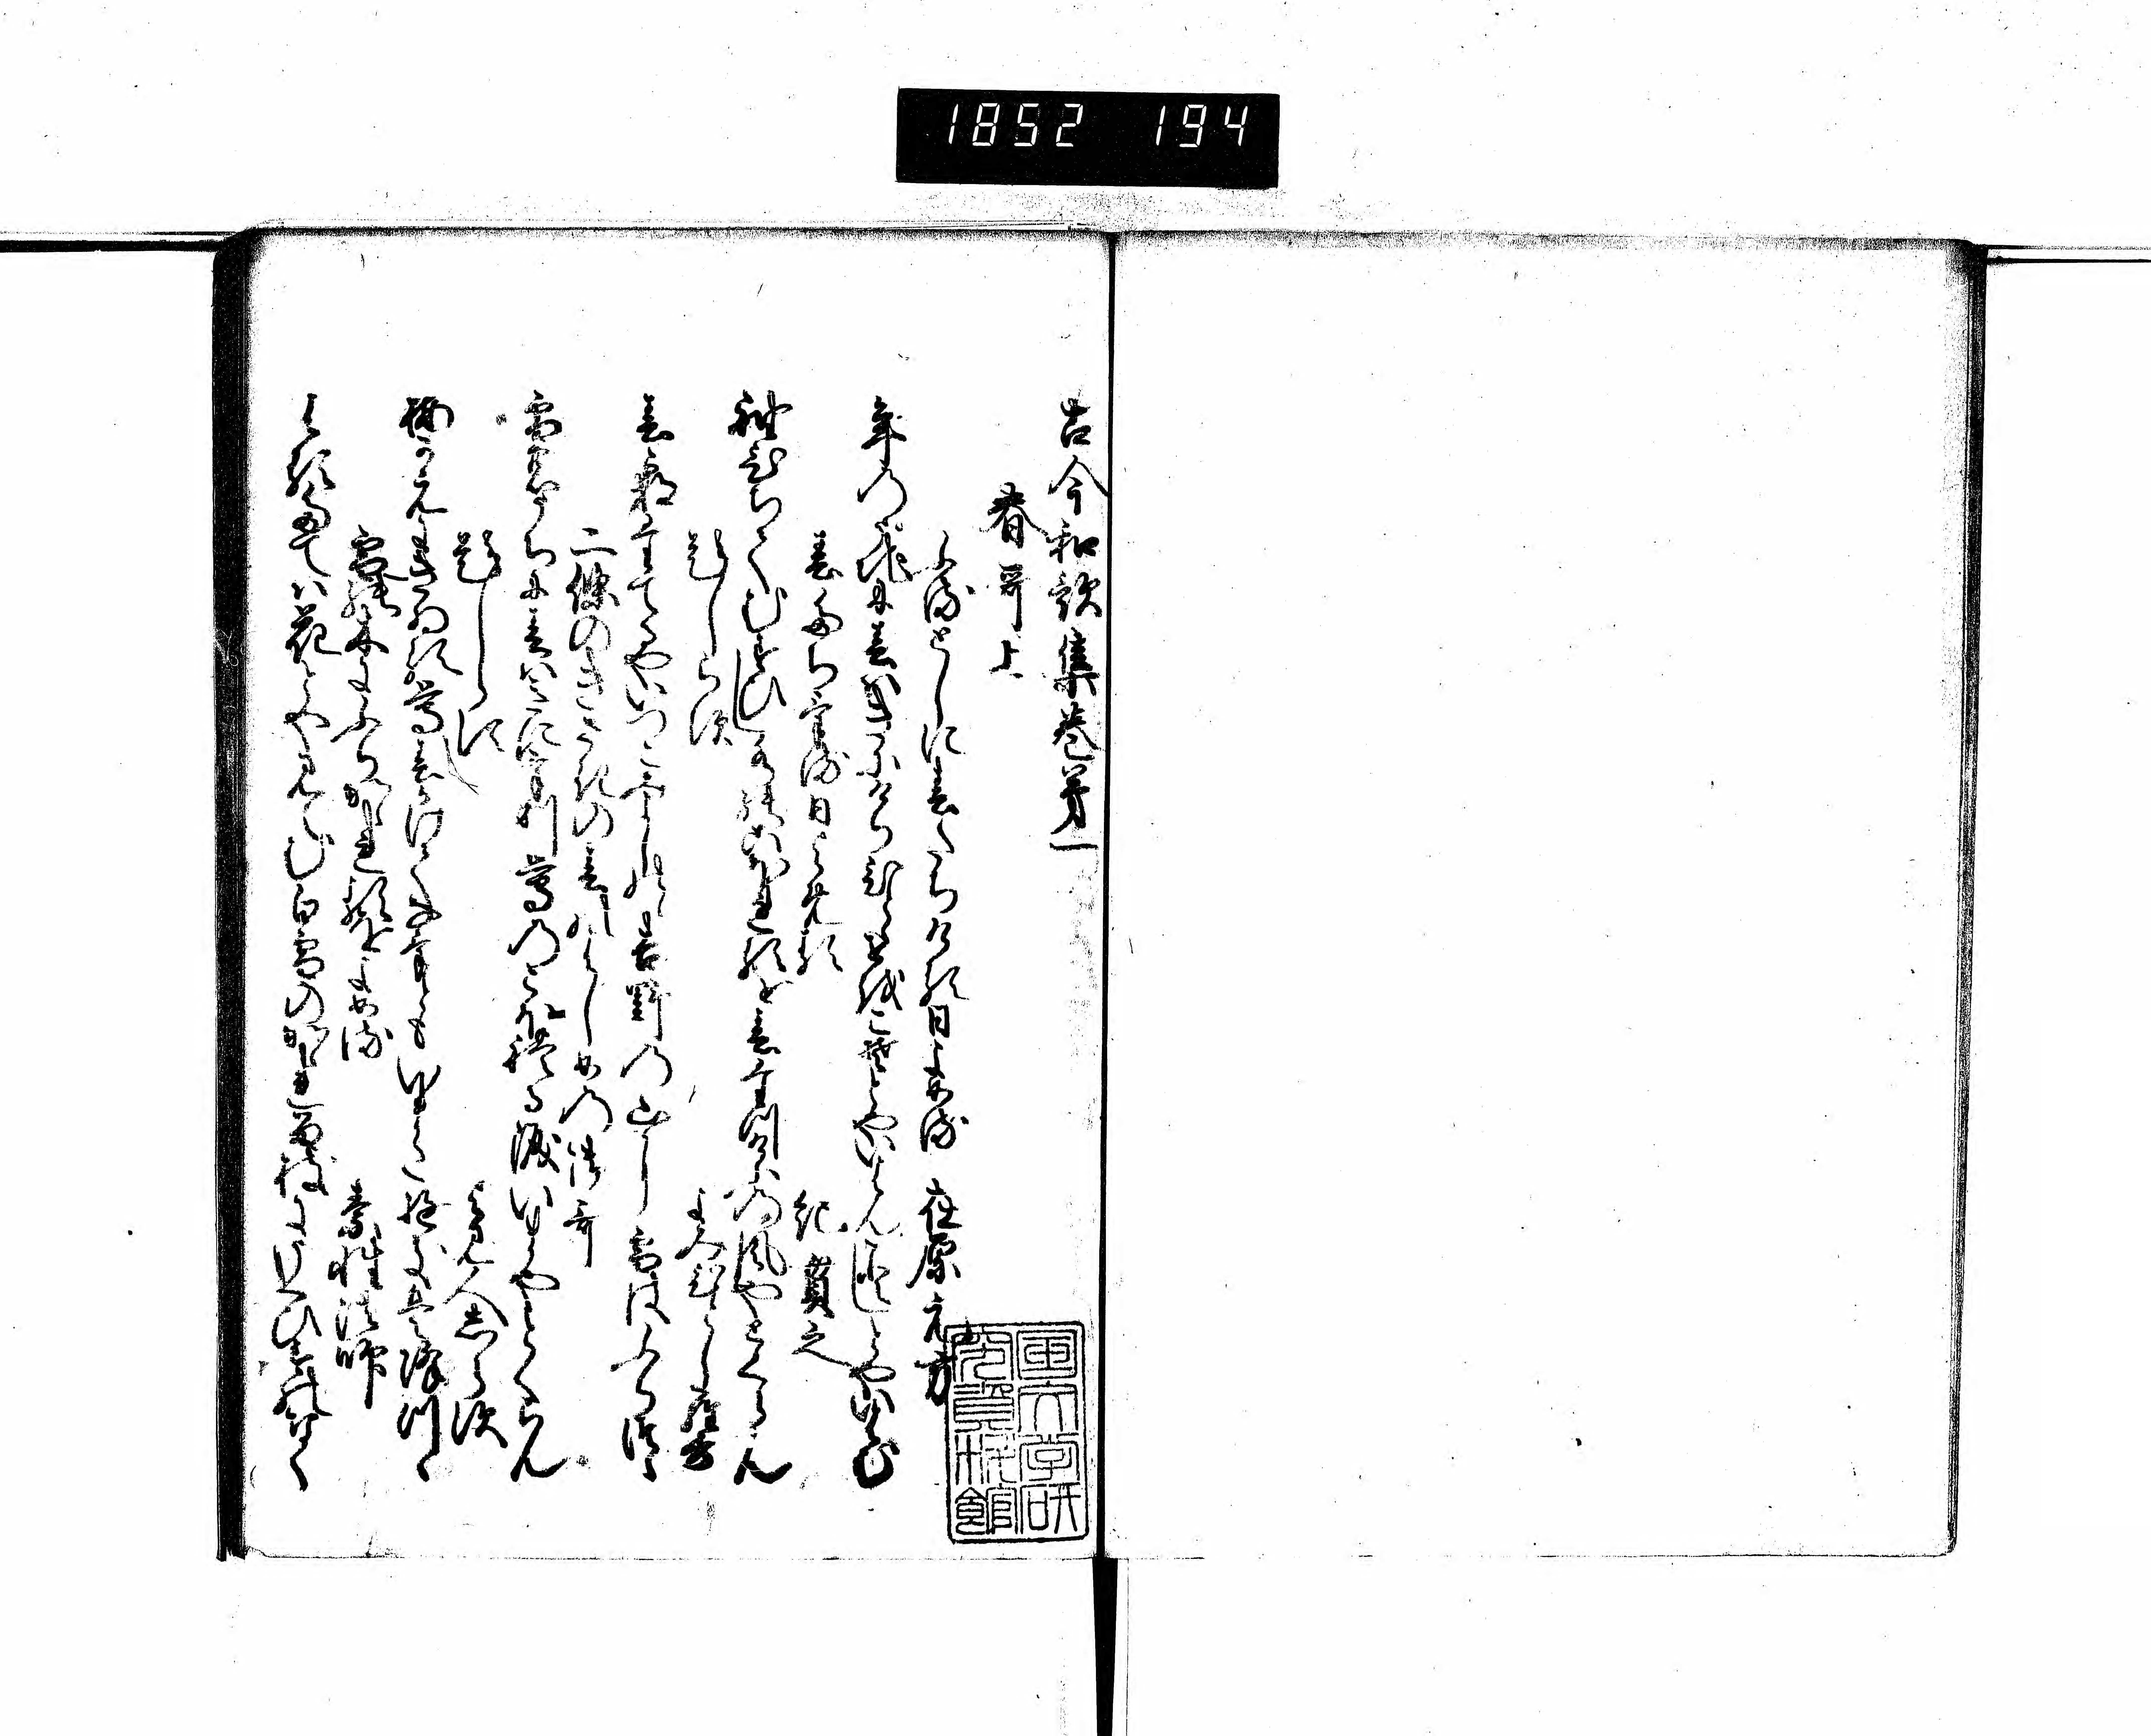 1852 194
古今和歌集巻第一
春哥上
ふるとしに春たちける日よめる 在原元方
年の内に春はきにけりひとゝせをこそとやいはんことしとやいはむ
春たちける日よめる 紀貫之
袖ひちてむすひし水のこほれるを春立けふの風やとくらん
題しらす よみ人しらす
春霞たてるやいつこみよしのゝ吉野の山に雪はふりつゝ
二條のきさきの春のはしめの御哥
雪の内に春はきにけり鶯のこほれる涙いまやとくらん
題しらす よみ人しらす
梅かえにきゐる鶯春かけてなけともいまた雪はふりつゝ
雪の木にふりかゝれるをよめる 素性法師
春たては花とやみらむ白雪のかゝれる枝にうくひすのなく
国文学研究資料館